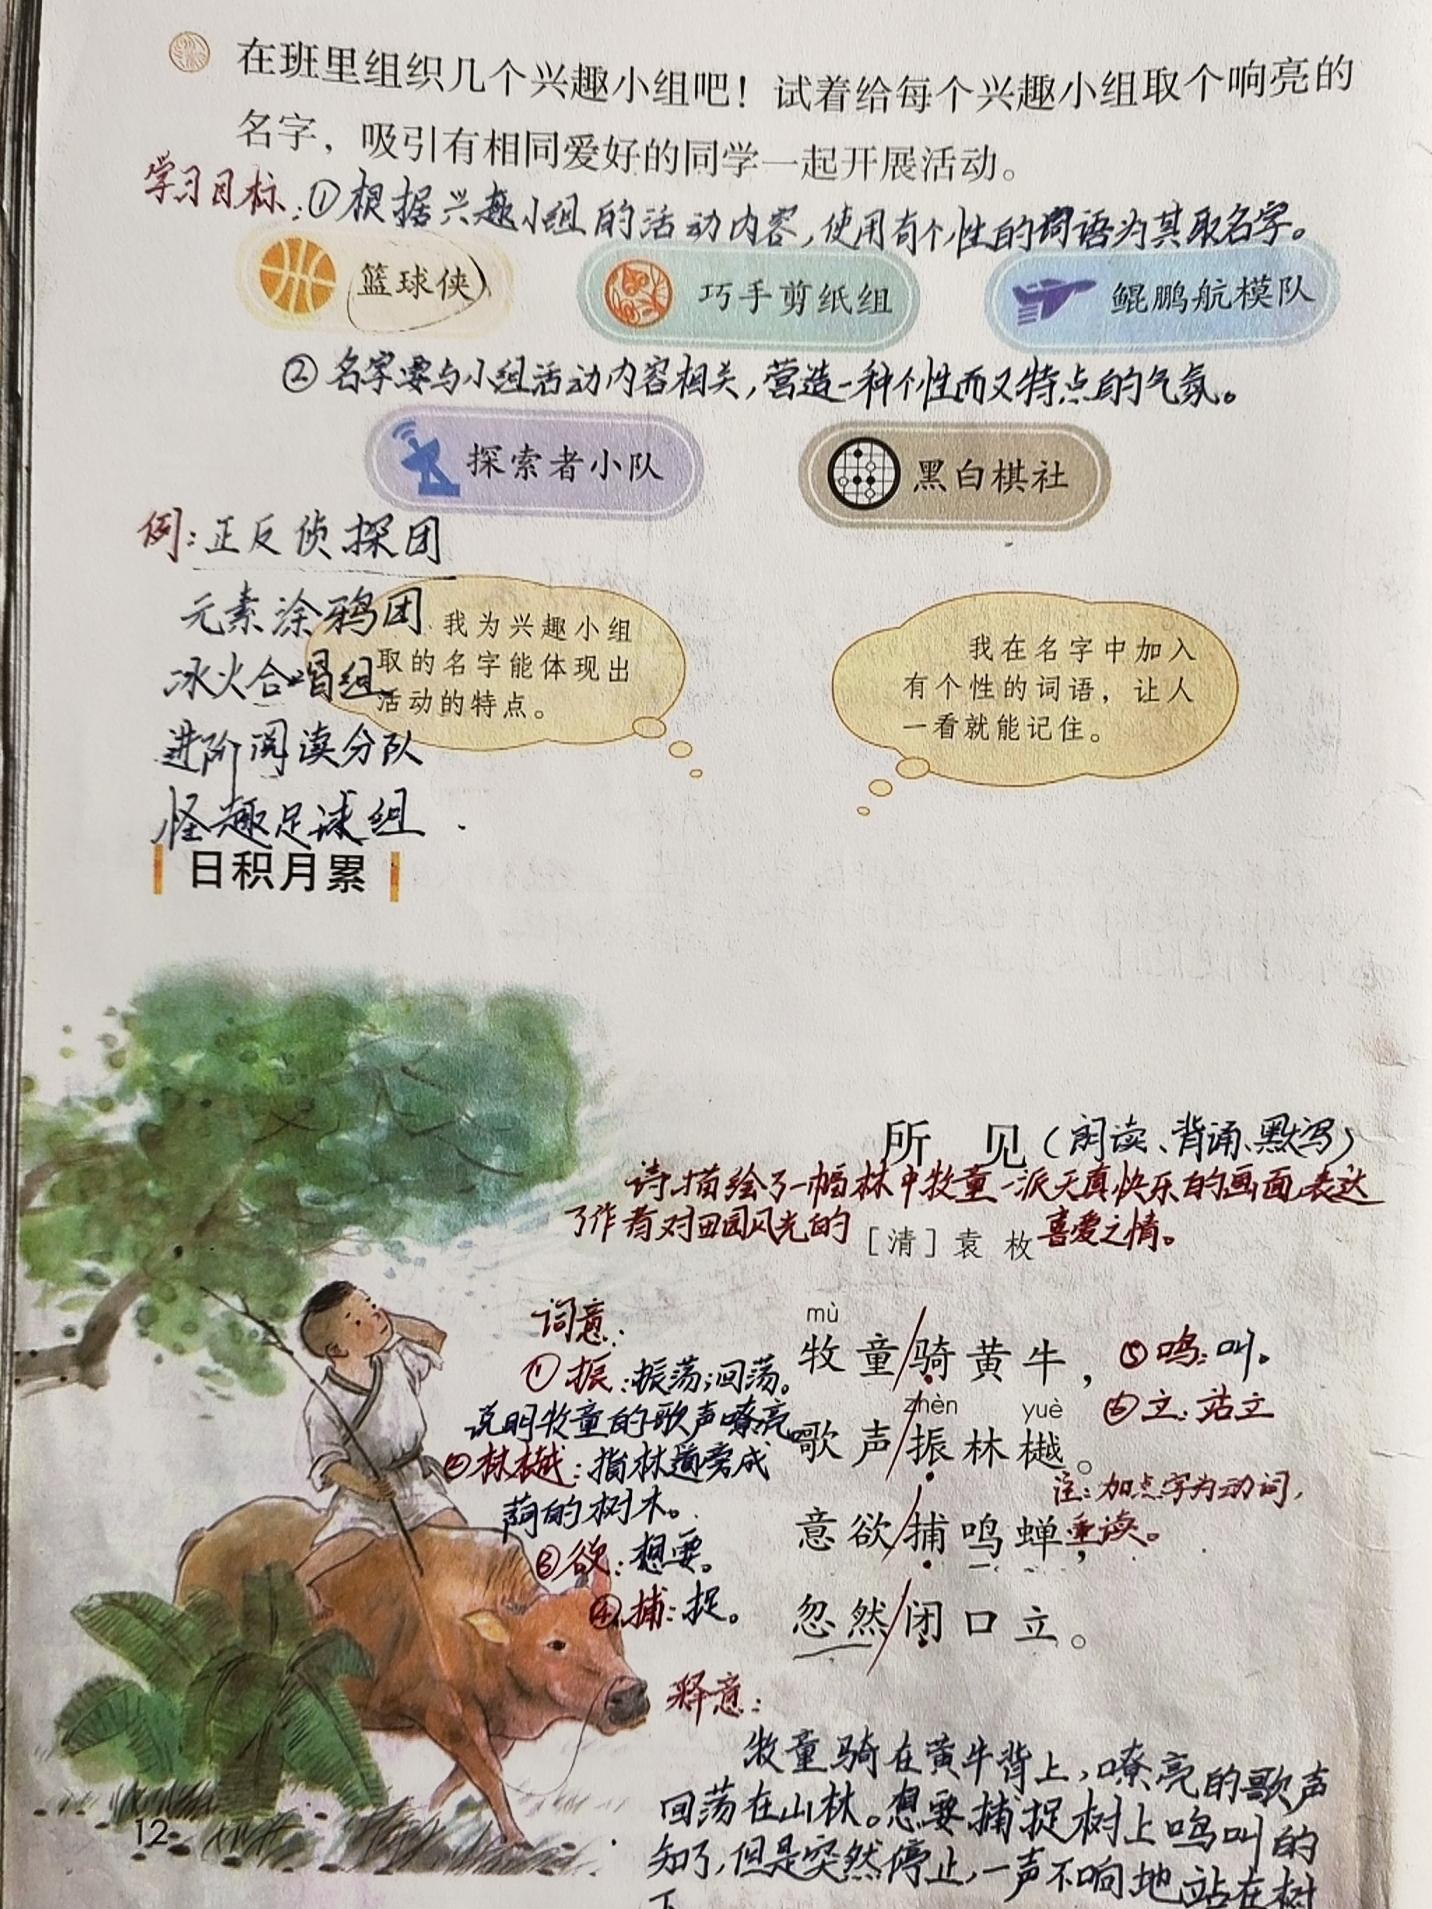 在班里组织几个兴趣小组吧！试着给每个兴趣小组取个响亮的
名字，吸引有相同爱好的同学一起开展活动。
学习目标：①根据兴趣小组的活动内容，使用有个性的词语为其取名字。
篮球侠
巧手剪纸组
鲲鹏航模队
②名字要与小组活动内容相关，营造一种个性而又特点的气氛。
探索者小队
黑白棋社
例：正反侦探团
元素涂鸦团
冰火合唱组
进阶阅读分队
怪趣足球组
我为兴趣小组
取的名字能体现出
活动的特点。
我在名字中加入
有个性的词语，让人
一看就能记住。
日积月累
所 见（朗读、背诵、默写）
诗描绘了一幅林中牧童一派天真快乐的画面，表达
了作者对田园风光的喜爱之情。
［清］袁 枚
词意：
①振：振荡；回荡。
说明牧童的歌声嘹亮
②林樾：指林道旁成
荫的树木。
③欲：想要。
④捕：捉。
mù
牧童/骑黄牛，
zhèn yuè
歌声/振林樾。
意欲/捕鸣蝉，
忽然/闭口立。
⑤鸣：叫。
⑥立：站立
注：加点字为动词，
重读。
释意：
牧童骑在黄牛背上，嘹亮的歌声
回荡在山林。想要捕捉树上鸣叫的
知了，但是突然停止，一声不响地站在树
下
12